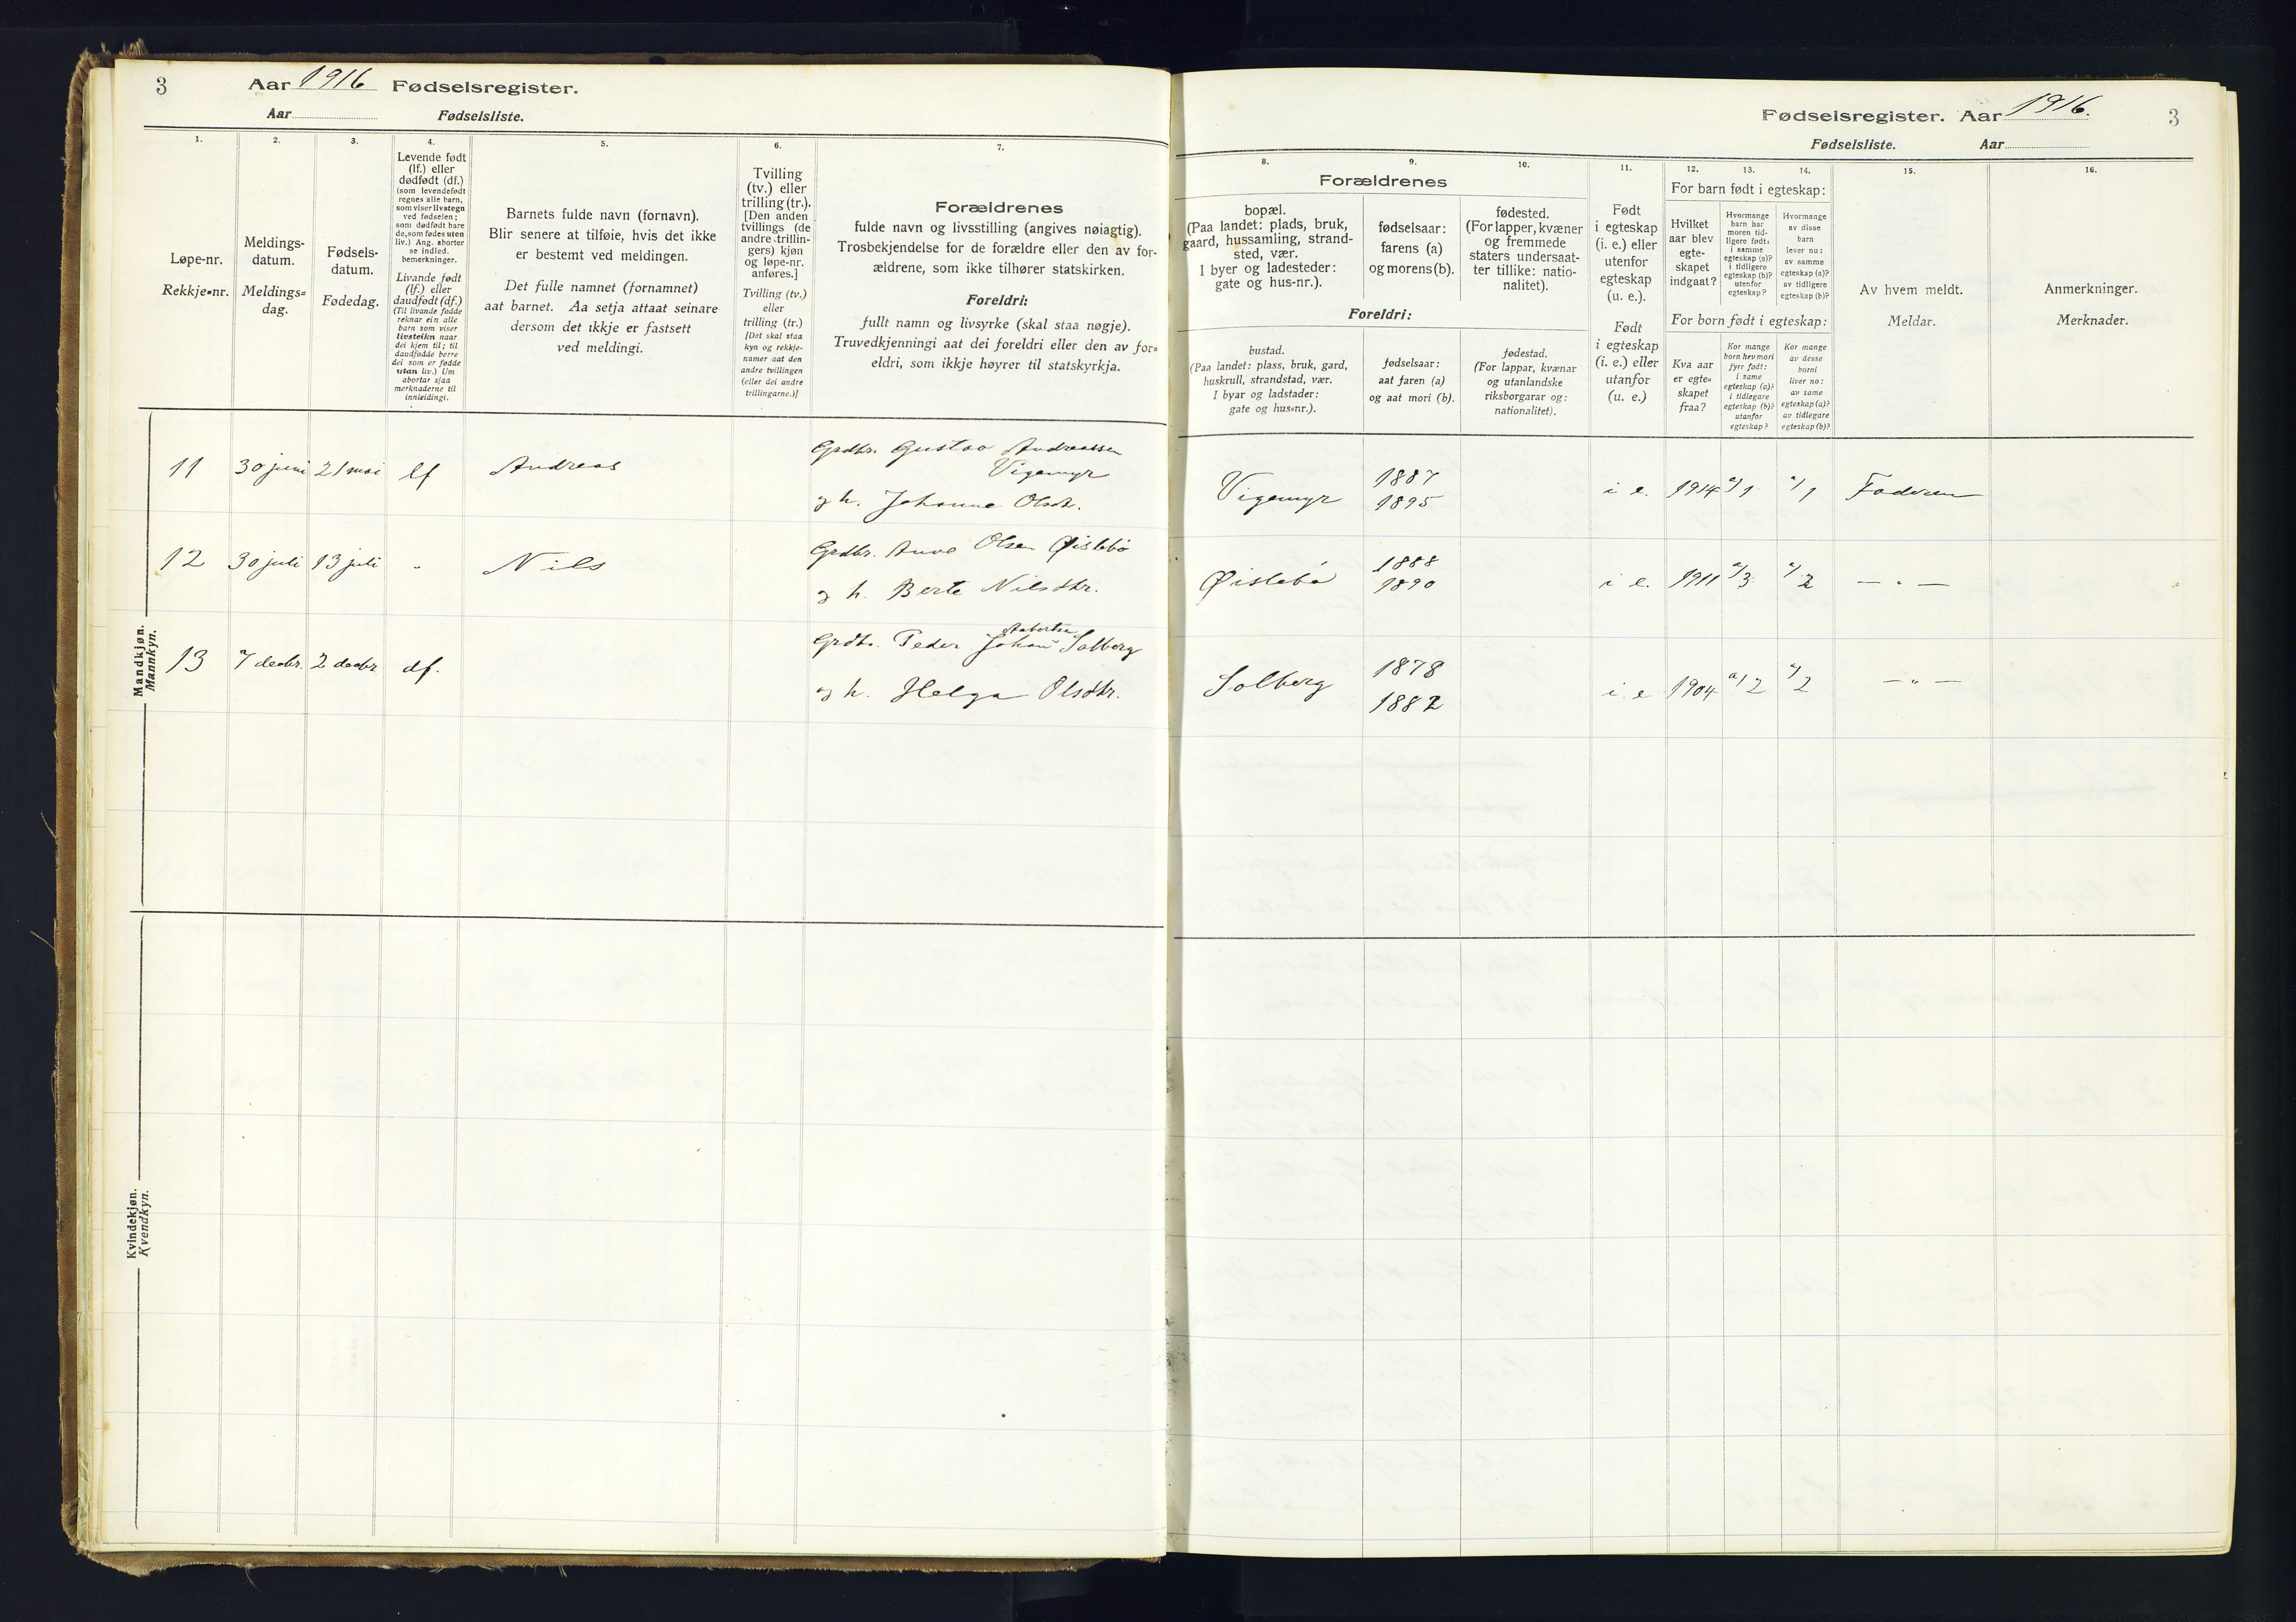 3 Aar 1916 Fødselsregister.
Aar Fødselsliste.
1.
Løpe-nr.
Rekkje=nr.
2.
Meldings-
datum.
Meldings=
dag.
3.
Fødsels-
datum.
Fødedag.
4.
Levende født
(lf.) eller
dødfødt (df.)
(som levendefødt
regnes alle barn,
som viser livstegn
ved fødselen;
som dødfødt bare
de, som fødes uten
liv.) Ang. aborter
se indled.
bemerkninger.
Livande født
(lf.) eller
daudfødt (df.)
(Til livande fødde
reknar ein alle
barn som viser
livsteikn naar
dei kjem til; til
daudfødde berre
dei som er fødde
utan liv.) Um
abortar sjaa
merknaderne til
innleidingi.
5.
Barnets fulde navn (fornavn).
Blir senere at tilføie, hvis det ikke
er bestemt ved meldingen.
Det fulle namnet (fornamnet)
aat barnet. Aa setja attaat seinare
dersom det ikkje er fastsett
ved meldingi.
6.
Tvilling
(tv.) eller
trilling (tr.).
[Den anden
tvillings (de
andre trillin-
gers) kjøn
og løpe-nr.
anføres.]
Tvilling (tv.)
eller
trilling (tr.)
[Det skal staa
kyn og rekkje-
numer aat den
andre tvillingen
(eller dei andre
trillingarne.)]
7.
Forældrenes
fulde navn og livsstilling (angives nøiagtig).
Trosbekjendelse for de forældre eller den av for-
ældrene, som ikke tilhører statskirken.
Foreldri:
fullt namn og livsyrke (skal staa nøgje).
Truvedkjenningi aat dei foreldri eller den av for=
eldri, som ikkje høyrer til statskyrkja.
Mandkjøn.
Mannkyn.
11 30 juni 21 mai lf Andreas
Grdbr. Gustav Andreassen
Vigemyr
og h. Johanne Olsdtr.
12 30 juli 13 juli " Nils
Grdbr. Olsen Øislebø
og h. Berte Nilsdtr.
13 7 decbr. 2 decbr df.
Grdbr. Peder Johan Solberg
og h. Helga Olsdtr.
Kvindekjøn.
Kvendkyn.
Fødselsregister. Aar 1916. 3
Fødselsliste. Aar
8. 9. 10.
Forældrenes
bopæl.
(Paa landet: plads, bruk,
gaard, hussamling, strand-
sted, vær.
I byer og ladesteder:
gate og hus-nr.).
fødselsaar:
farens (a)
og morens (b).
fødested.
(For lapper, kvæner
og fremmede
staters undersaat-
ter tillike: natio-
nalitet).
Foreldri:
bustad.
(Paa landet: plass, bruk, gard,
huskrull, strandstad, vær.
I byar og ladstader:
gate og hus=nr.).
fødselsaar:
aat faren (a)
og aat mori (b).
fødestad.
(For lappar, kvænar
og utanlandske
riksborgarar og:
nationalitet).
11.
Født
i egteskap
(i. e.) eller
utenfor
egteskap
(u. e.).
Født
i egteskap
(i. e.) eller
utanfor
(u. e.)
12. 13. 14.
For barn født i egteskap:
Hvilket
aar blev
egte-
skapet
indgaat?
Hvormange
barn har
moren tid-
ligere født:
i samme
egteskap (a)?
i tidligere
egteskap (b)?
utenfor
egteskap?
Hvormange
av disse
barn
lever nu:
av samme
egteskap (a)?
av tidligere
egteskap (b)?
For born født i egteskap:
Kva aar
er egte=
skapet
fraa?
Kor mange
born hev mori
fyrr født:
i same
egteskap (a)?
i tidlegare
egteskap (b)?
utanfor
egteskap?
Kor mange
av desse
borni
liver no:
av same
egteskap (a)?
av tidlegare
egteskap (b)?
15.
Av hvem meldt.
Meldar.
16.
Anmerkninger.
Merknader.
Vigemyr 1887 1895 i e. 1914 a/1 a/1 Faderen
Øislebø 1888 1890 i e. 1911 a/3 a/2 — " —
Solberg 1878 1882 i. e 1904 a/2 a/2 — " —